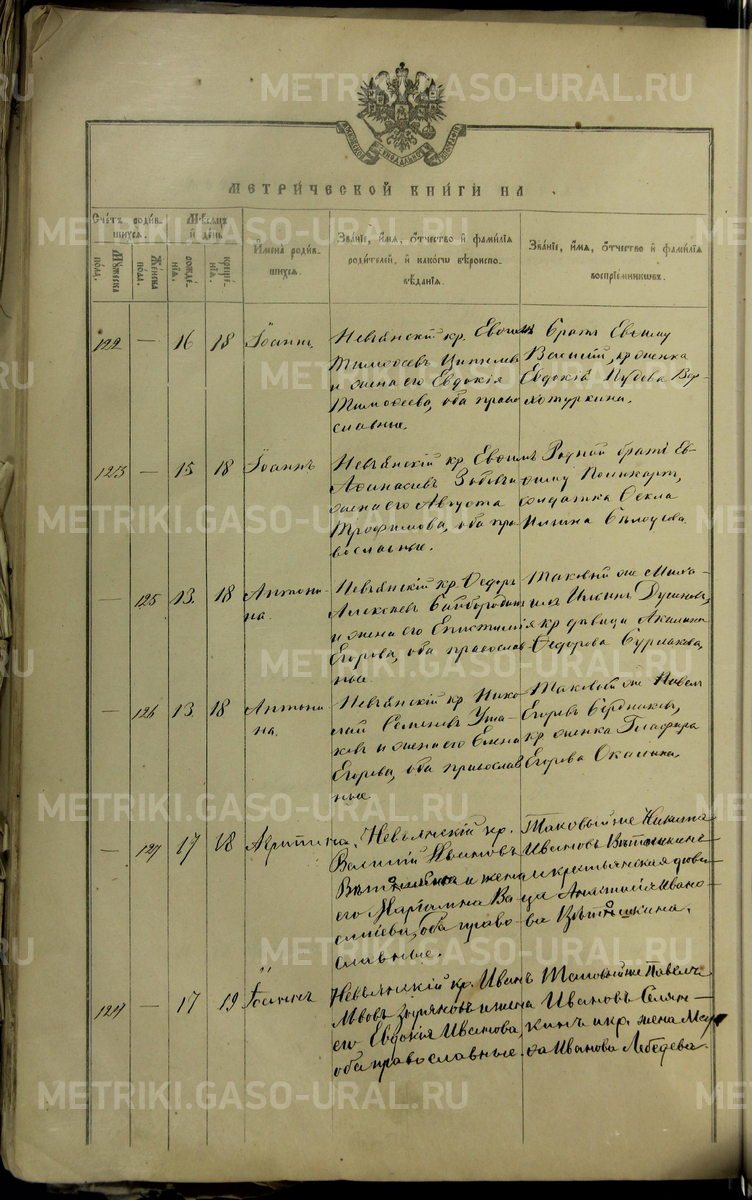 METRIKI.GASO-URAL.RU
МЕТРИ́ЧЕСКОЙ КНИ́ГИ НА
Сче́тъ роди́в-
шихся.
Му́жеска
по́ла.
Же́нска
по́ла.
Мѣ́сяцъ
и де́нь
рожде́-
нія.
креще́-
нія.
И҆мена̀ роди́в-
шихся.
Зва́ніе, и҆́мя, ѻ҆́тчество и҆ фами́лія
роди́телей, и҆ како́гѡ вѣроиспо-
вѣ́данія.
Зва́ніе, и҆́мя, ѻ҆́тчество и҆ фами́лія
воспріе́мниковъ.
122 — 16 18 Іоаннъ
Невьянскій кр. Евфимъ
Тимофеевъ
и жена его Евдокія
Тимофеева, оба право
славные.
Братъ Евфиму
Василій, кр женка
Евдокія Вер-
хотуркина.
123 — 15 18 Іоаннъ
Невьянскій кр Евфимъ
Афанасьевъ
жена его Августа
Трофимова, оба пра
вославные.
Родной братъ Ев-
фиму Поликарпъ,
солдатка Фекла
Ильина
— 125 13 18 Антони-
на.
Невьянскій кр. Федоръ
Алексеевъ Байбородинъ
и жена его Епистимія
Егорова, оба православ-
ные
Таковый же Миха-
илъ Ильинъ
кр девица Акилина
Федорова Бурмакова,
— 126 13 18 Антони
на.
Невьянскій кр Нико
лай Семеновъ Уша-
ковъ и жена его Елена
Егорова, оба православ
ные.
Таковый же Павелъ
Егоровъ Бердниковъ,
кр женка Глафира
Егорова
— 127 17 18
Невьянскій кр.
Василій Ивановъ
и жена
его Маріамна Ва
сильева, оба право-
славные.
Таковый же Никита
Ивановъ
и крестьянская деви-
ца Анастасія Ивано-
ва
124 — 17 19 Іоаннъ
Невьянскій кр. Иванъ
Львовъ Зыряновъ и жена
его Евдокія Иванова,
оба православные.
Таковый же Павелъ
Ивановъ Селян-
кинъ и кр. жена Мар
фа Иванова Лебедева.